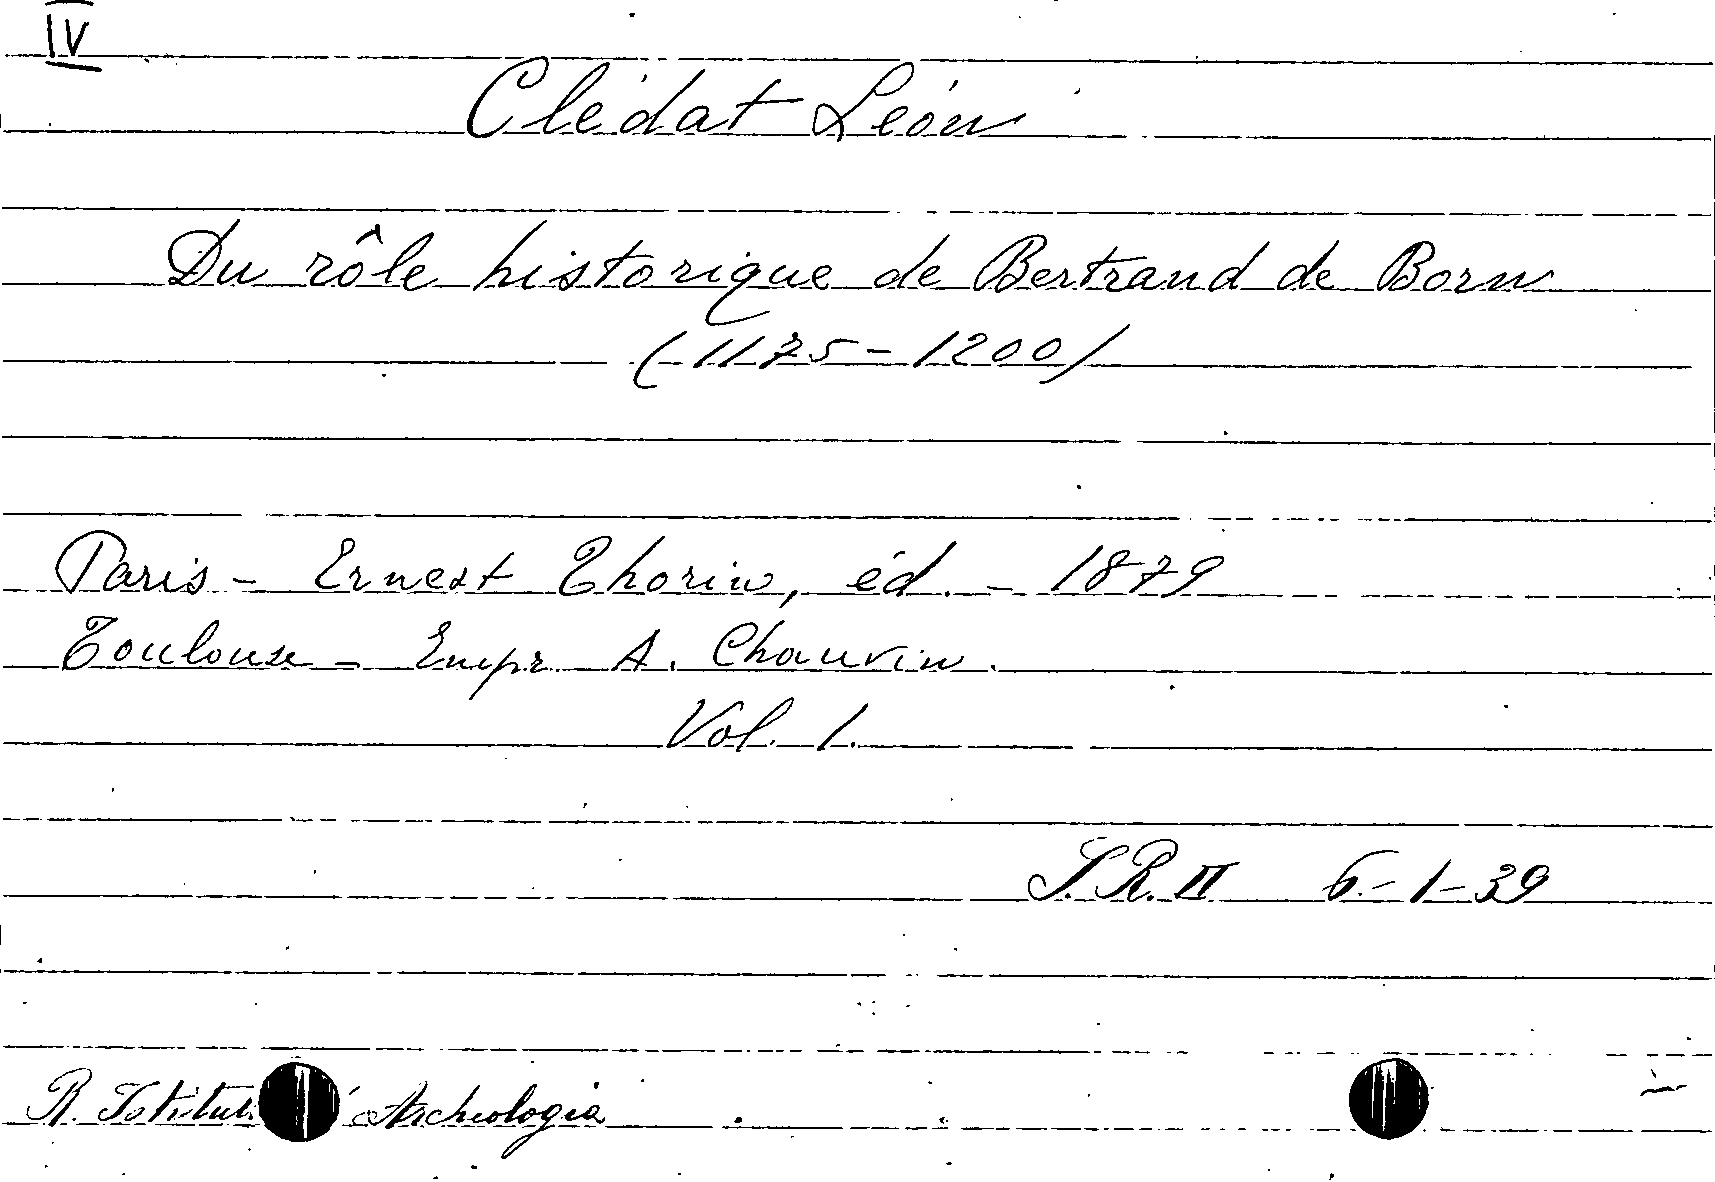 IV
Clédat Léon
Du rôle historique de Bertrand de Born
(1175-1200)
Paris - Ernest Thorin, éd. - 1879
Toulouse - Impr A. Chauvin.
Vol. 1.
S.R. II 6-1-39
R. Archeologia